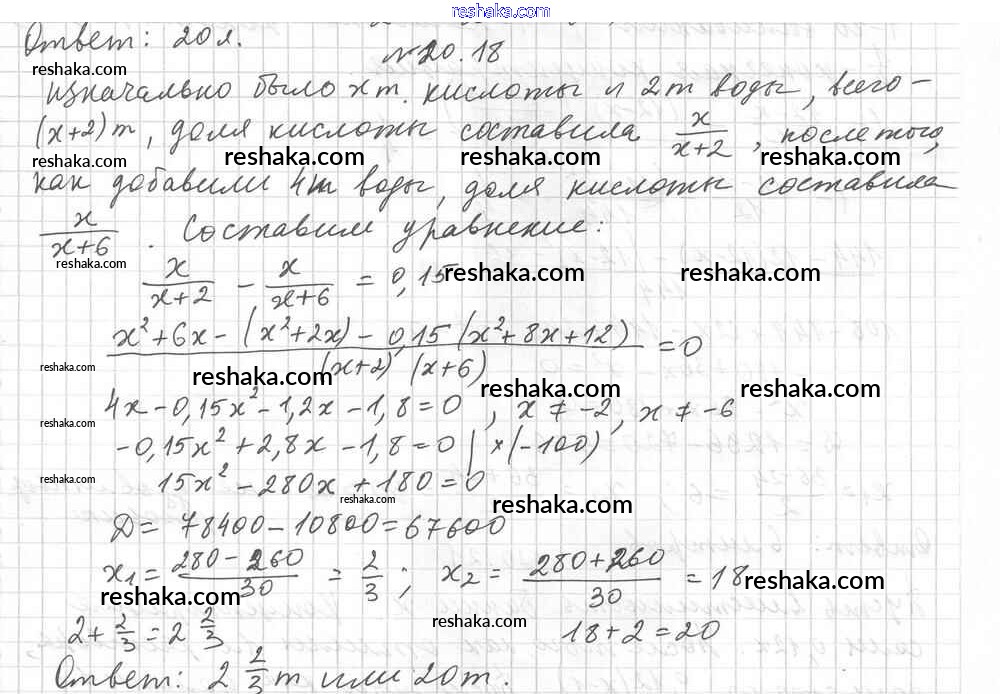 reshaka.com
Ответ: 20 л.
reshaka.com
№20.18
изначально было x т. кислоты и 2 т воды, всего –
reshaka.com
(x+2) т, доля кислоты составила x/(x+2), после того,
reshaka.com reshaka.com reshaka.com
как добавили 4 т воды, доля кислоты составила
x/(x+6). Составим уравнение:
reshaka.com
x/(x+2) - x/(x+6) = 0,15
reshaka.com reshaka.com
(x²+6x-(x²+2x)-0,15(x²+8x+12))/((x+2)(x+6)) = 0
reshaka.com reshaka.com reshaka.com reshaka.com
4x-0,15x²-1,2x-1,8=0, x≠-2, x≠-6
reshaka.com
-0,15x²+2,8x-1,8=0 | ×(-100)
15x²-280x+180=0
reshaka.com reshaka.com reshaka.com
D= 78400-10800=67600
x₁= (280-260)/30 = 2/3; x₂= (280+260)/30 = 18
reshaka.com reshaka.com
2+2/3=2 2/3 18+2=20
reshaka.com
Ответ: 2 2/3 т или 20 т.
reshaka.com reshaka.com